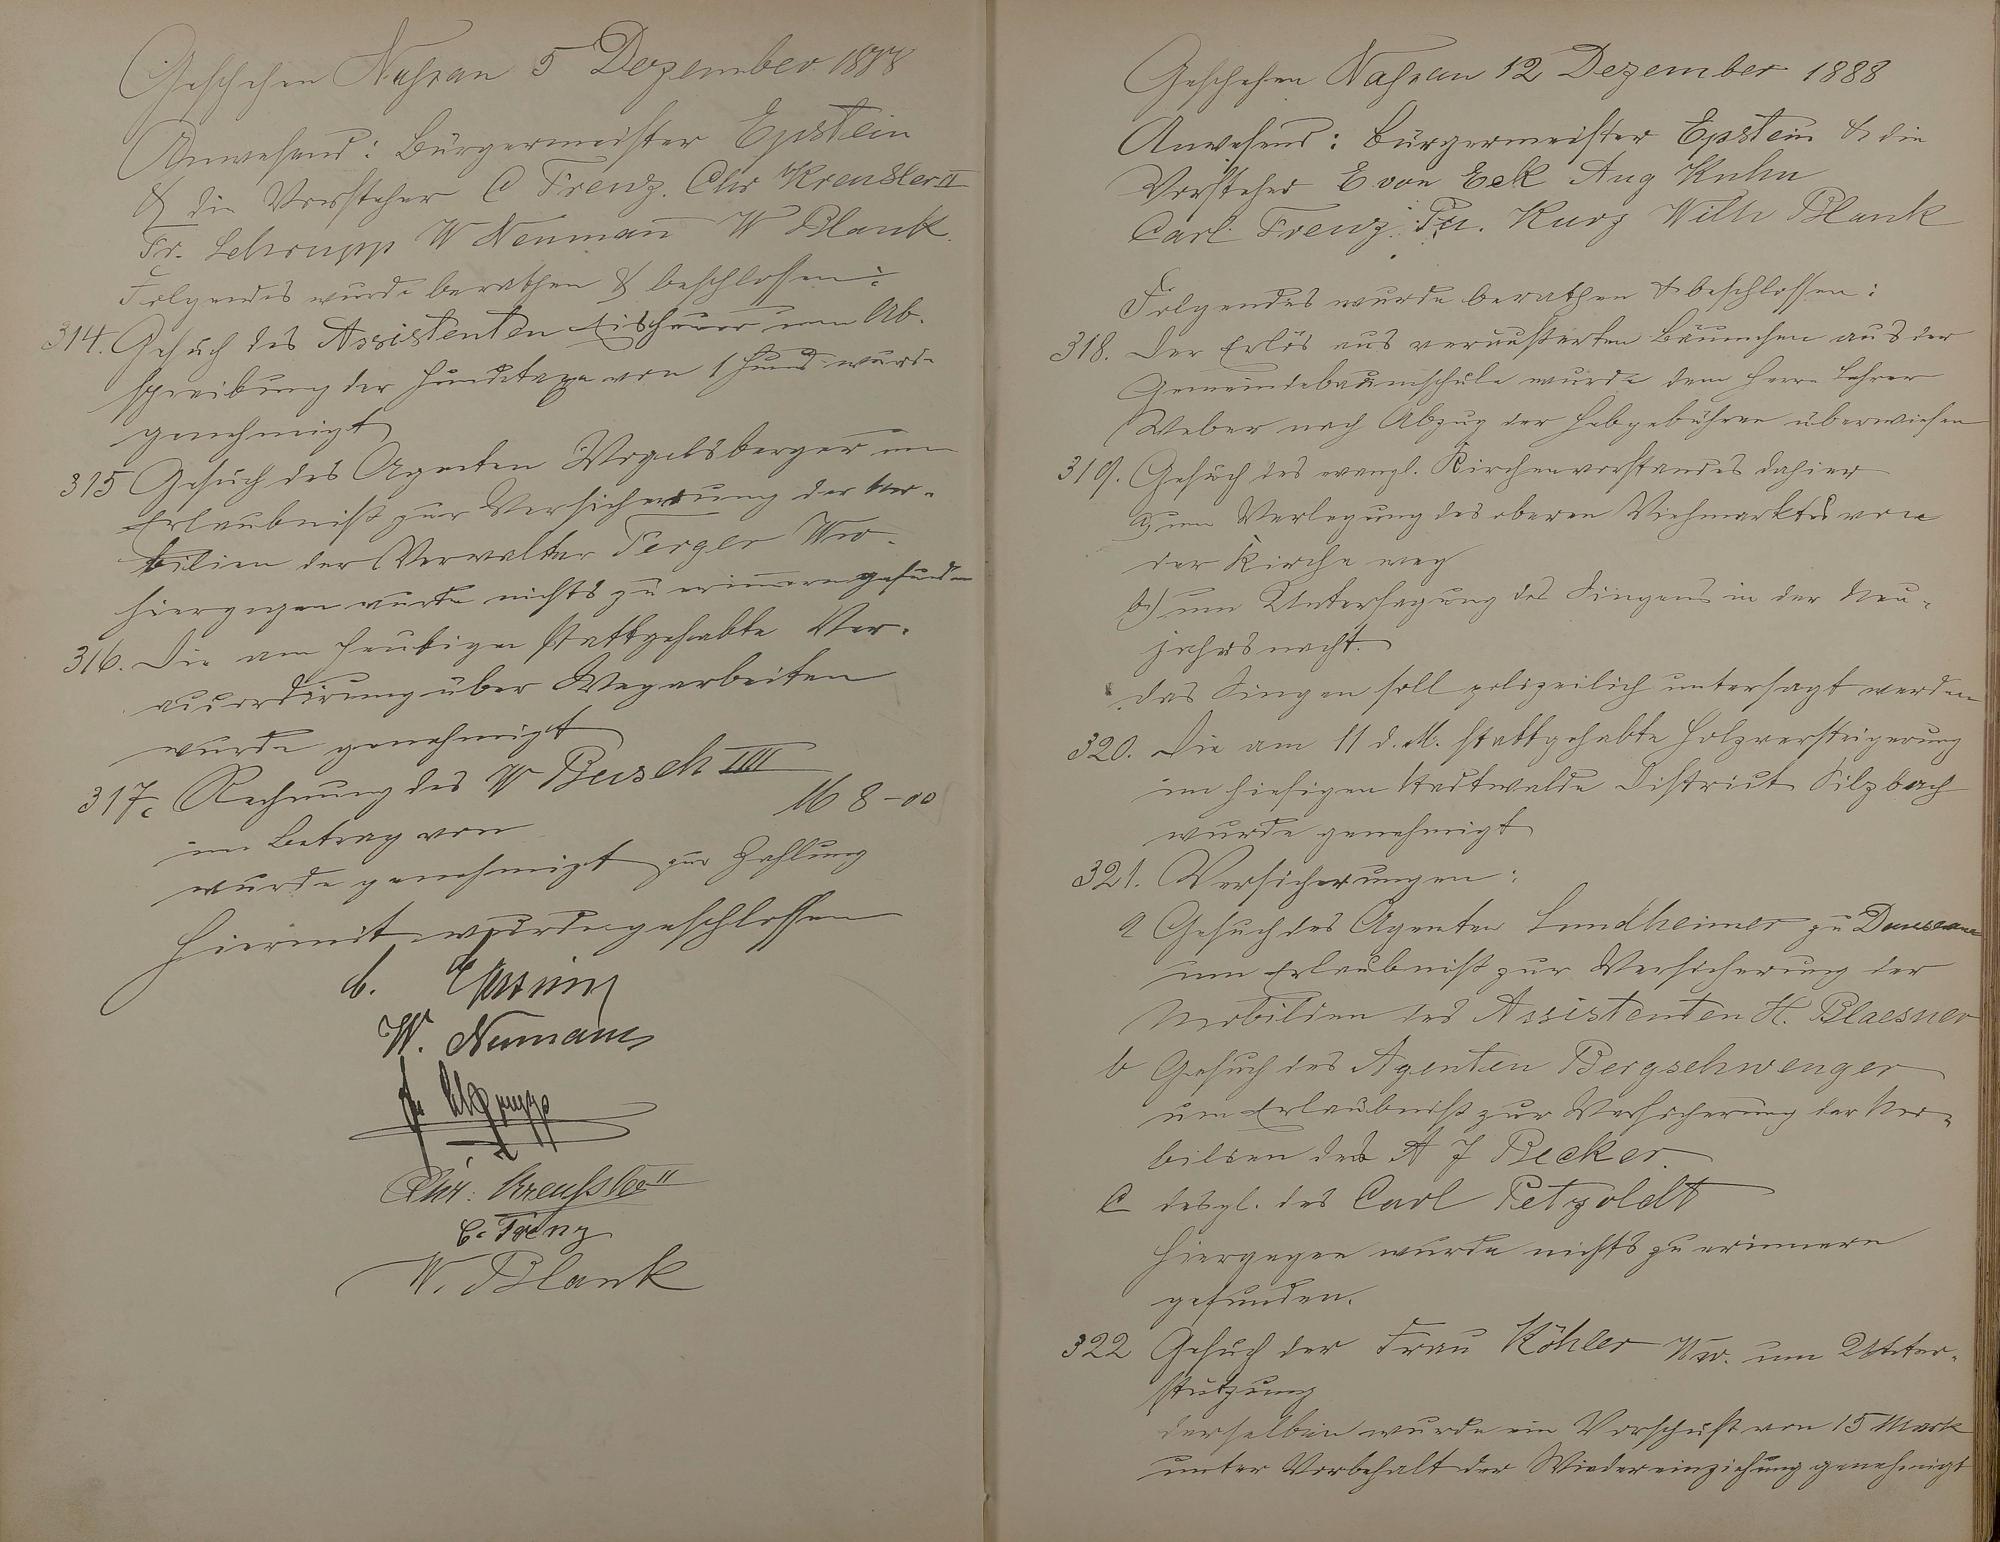 Geschehen Nassau 5 Dezember 1888
Anwesend: Bürgermeister Epstein
& die Vorsteher C Trenz. Chr Kreusler II
Fr. Schrupp W Neuman̄ W Blank.
Folgendes wurde berathen & beschlossen:
314. Gesuch des Assistenten um Ab-
schreibung der Hundetaxe von 1 Hund wurde
genehmigt
315 Gesuch des Agenten Vogelsberger um
Erlaubniß zur Versicherung der Mo-
bilien der Verwalter Terger Ww.
hiergegen wurde nichts zu erinnern gefunden
316. Die am heutigen stattgehabte Ver-
accordirung über Wegarbeiten
wurde genehmigt
317. Rechnung des W Busch IIII
im Betrag von M 8-00
wurde genehmigt zur Zahlung
Hiermit wurde geschlossen
Epstein
W. Neumann
Fr Schrupp
Chr. Kreußler II
C. Trenz
W. Blank
Geschehen Nassau 12 Dezember 1888
Anwesend: Bürgermeister Epstein & die
Vorsteher E von Eck Aug Kuhn
Carl Trenz. Fr. Kurz Wilh Blank
Folgendes wurde berathen & beschlossen:
318. Der Erlös aus veräußerten Bäumchen aus der
Gemeindebaumschule wurde dem Herrn Lehrer
Weber nach Abzug der Hebgebühren überwiesen
319. Gesuch des evangl. Kirchenvorstandes dahier
a) um Verlegung des oberen Viehmarktes von
der Kirche weg
b) um Untersagung des Singens in der Neu-
jahrsnacht.
das Singen soll polizeilich untersagt werden
320. Die am 11 d. M. stattgehabte Holzversteigerung
im hiesigen Stadtwalde District Silzbach
wurde genehmigt
321. Versicherungen:
a Gesuch des Agenten Sundheimer zu
um Erlaubniß zur Versicherung der
Mobilien des Assistenten H. Blaesner
b Gesuch des Agenten Bergschwenger
um Erlaubniß zur Versicherung der Mo-
bilien des A J Becker.
C desgl. des Carl Petzoldt
hiergegen wurde nichts zu erinnern
gefunden.
322 Gesuch der Frau Köhler Ww. um Unter-
stützung
derselben wurde ein Vorschuß von 15 Mark
unter Vorbehalt der Wiedereinziehung genehmigt